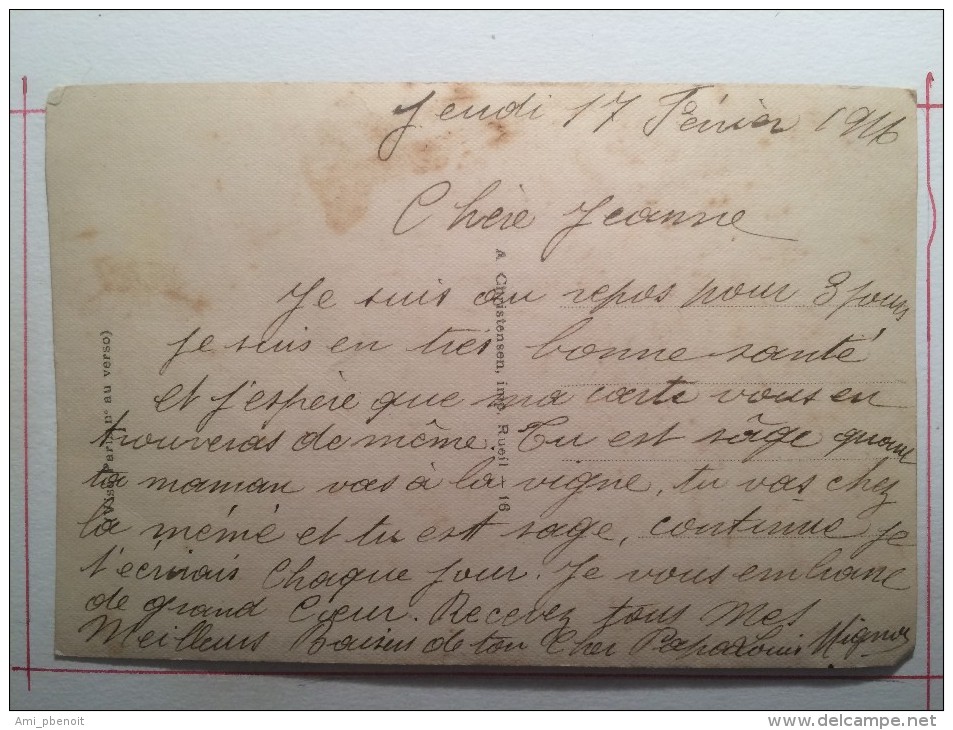 Jeudi 17 Février 1916
Chère Jeanne
Je suis au repos pour 3 jours
je suis en très bonne santé
et j'espère que ma carte vous en
trouveras de même. Tu est sâge quant
ta maman vas à la vigne, tu vas chez
la mémé et tu est sage, continue je
t'écrirais chaque jour. Je vous embrasse
de grand Cœur. Recevez tous mes
Meilleurs Baisers de ton Cher Papa Louis
A Christensen, imp. Rueil - 16
(Visé Paris n° au verso)
Ami_pbenoit
delcampe.net